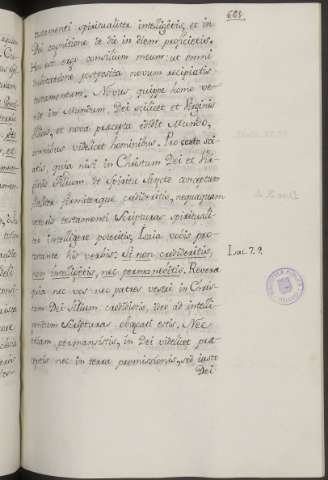 603.
tamenti spiritualiter intelligetis, et in
Dei cognitione de die in diem proficietis.
Hoc est ergo consilium meum ut omni
dubitatione postposita novum recipiatis
testamentum. Novus quippe homo ve-
nit in Mundum, Dei scilicet et Virginis
filius, et nova præcepta edidit Mundo,
omnibus videlicet hominibus. Pro certo sci-
atis, quia nisi in Christum Dei et Vir-
ginis Filium, de Spiritu Sancto conceptum
fideliter firmiterque credideritis, nequaquam
veteris testamenti Scripturas spirituali-
ter intelligere poteritis, Isaia vobis pro-
testante his verbis: Si non credideritis,
non intelligetis, nec permanebitis. Revera
quia nec vos nec patres vestri in Chris-
tum Dei filium, credidistis, ideo ad intelli-
gentiam Scripturas obcæcati estis. Nec
etiam permansistis, in Dei videlicet præ-
ceptis nec in terra promissionis, sed iusto
Dei
Isac. 7. 9.